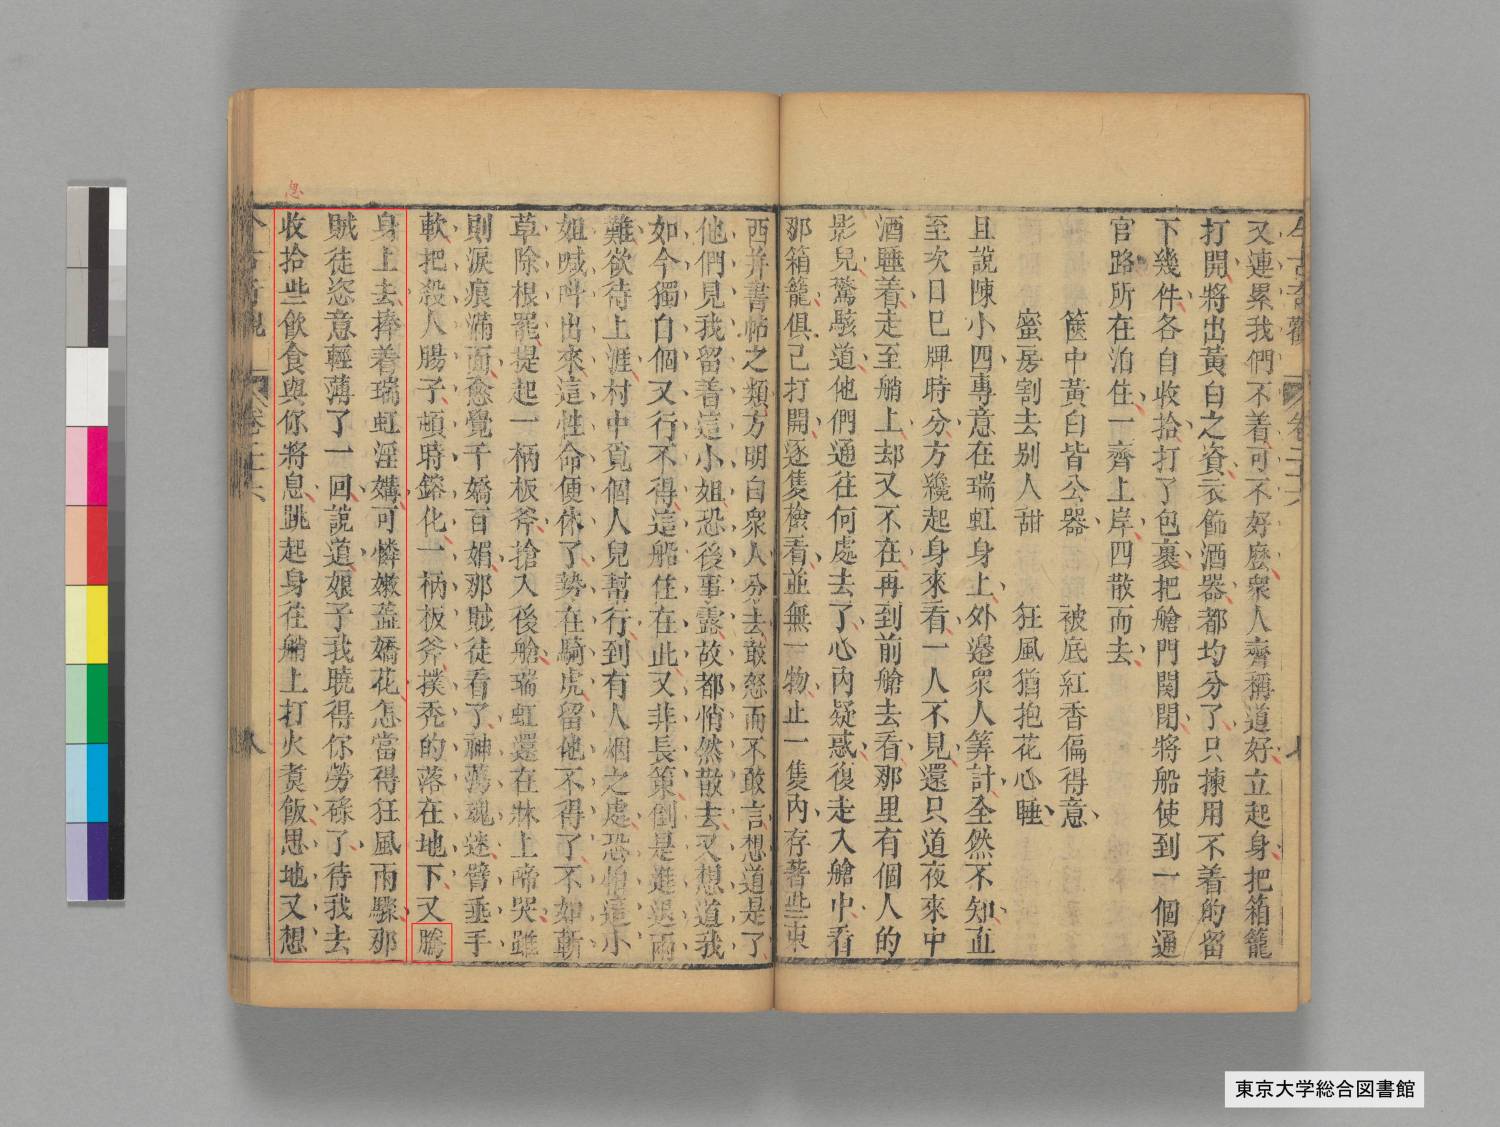 今古奇觀 卷二十六 七
又連累我們不着可不好麽衆人齊稱道好立起身把箱籠
打開將出黃白之資衣飾酒器都均分了只揀用不着的留
下幾件各自收拾打了包裹把艙門関閉將船使到一個通
官路所在泊住一齊上岸四散而去
篋中黃白皆公器 被底紅香偏得意
蜜房割去别人甜 狂風猶抱花心睡
且說陳小四專意在瑞虹身上外邉衆人筭計全然不知直
至次日巳牌時分方纔起身來看一人不見還只道夜來中
酒睡着走至艄上却又不在再到前艙去看那里有個人的
影兒驚駭道他們通往何處去了心內疑惑復走入艙中看
那箱籠俱已打開逐隻檢看並無一物止一隻內存著些東
西并書帖之類方明白衆人分去敢怒而不敢言想道是了
他們見我留着這小姐恐後事露故都悄然散去又想道我
如今獨自個又行不得這船住在此又非長策倒是進退兩
難欲待上涯村中覓個人兒幫行到有人烟之處恐怕這小
姐喊呌出來這性命便休了勢在騎虎留他不得了不如斬
草除根罷提起一柄板斧搶入後艙瑞虹還在牀上啼哭雖
則淚痕滿面愈覺千嬌百媚那賊徒看了神蕩魂迷臂垂手
軟把殺人腸子頓時鎔化一柄板斧撲秃的落在地下又騰
身上去捧着瑞虹淫媾可憐嫩蕊嬌花怎當得狂風雨驟那
賊徒恣意輕薄了一回說道娘子我曉得你勞碌了待我去
收拾些飲食與你將息跳起身往艄上打火煑飯思地又想
忽
今古奇觀 卷二十六
東京大学総合図書館